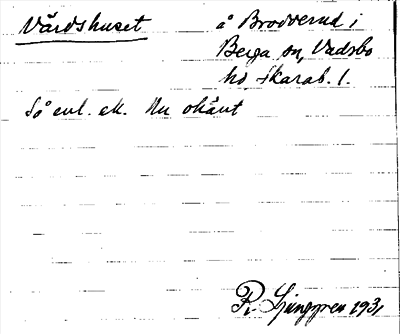 Värdshuset å Brodderud i
Berga sn, Vadsbo
hd, Skarab. l.
Så enl. ek. Nu okänt
R. Ljunggren 1931